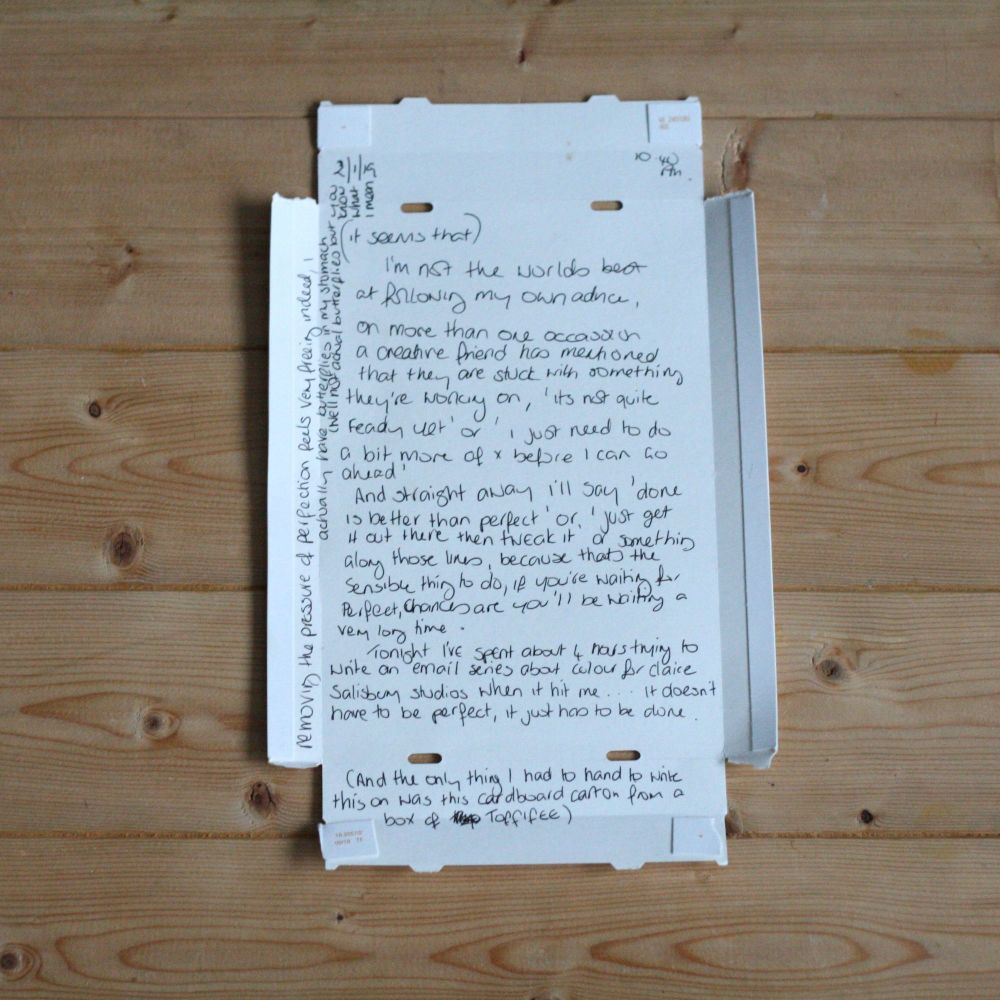 2/1/19
10.40
pm.
(it seems that)
I'm not the worlds best
at following my own advice,
on more than one occassion
a creative friend has mentioned
that they are stuck with something
they're working on, 'its not quite
ready yet' or 'i just need to do
a bit more of x before I can go
ahead'
And straight away i'll say 'done
is better than perfect' or, 'just get
it out there then tweak it' or something
along those lines, because thats the
sensible thing to do, if you're waiting for
Perfect, chances are you'll be waiting a
very long time.
Tonight I've spent about 4 hours trying to
write an email series about colour for claire
Salisbury studios when it hit me.... it doesn't
have to be perfect, it just has to be done.
(And the only thing I had to hand to write
this on was this cardboard carton from a
box of TOFFIFEE)
removing the pressure of perfection feels very freeing indeed, i
actually have butterflies in my stomach
(well not actual butterflies but you
know
what
i mean)